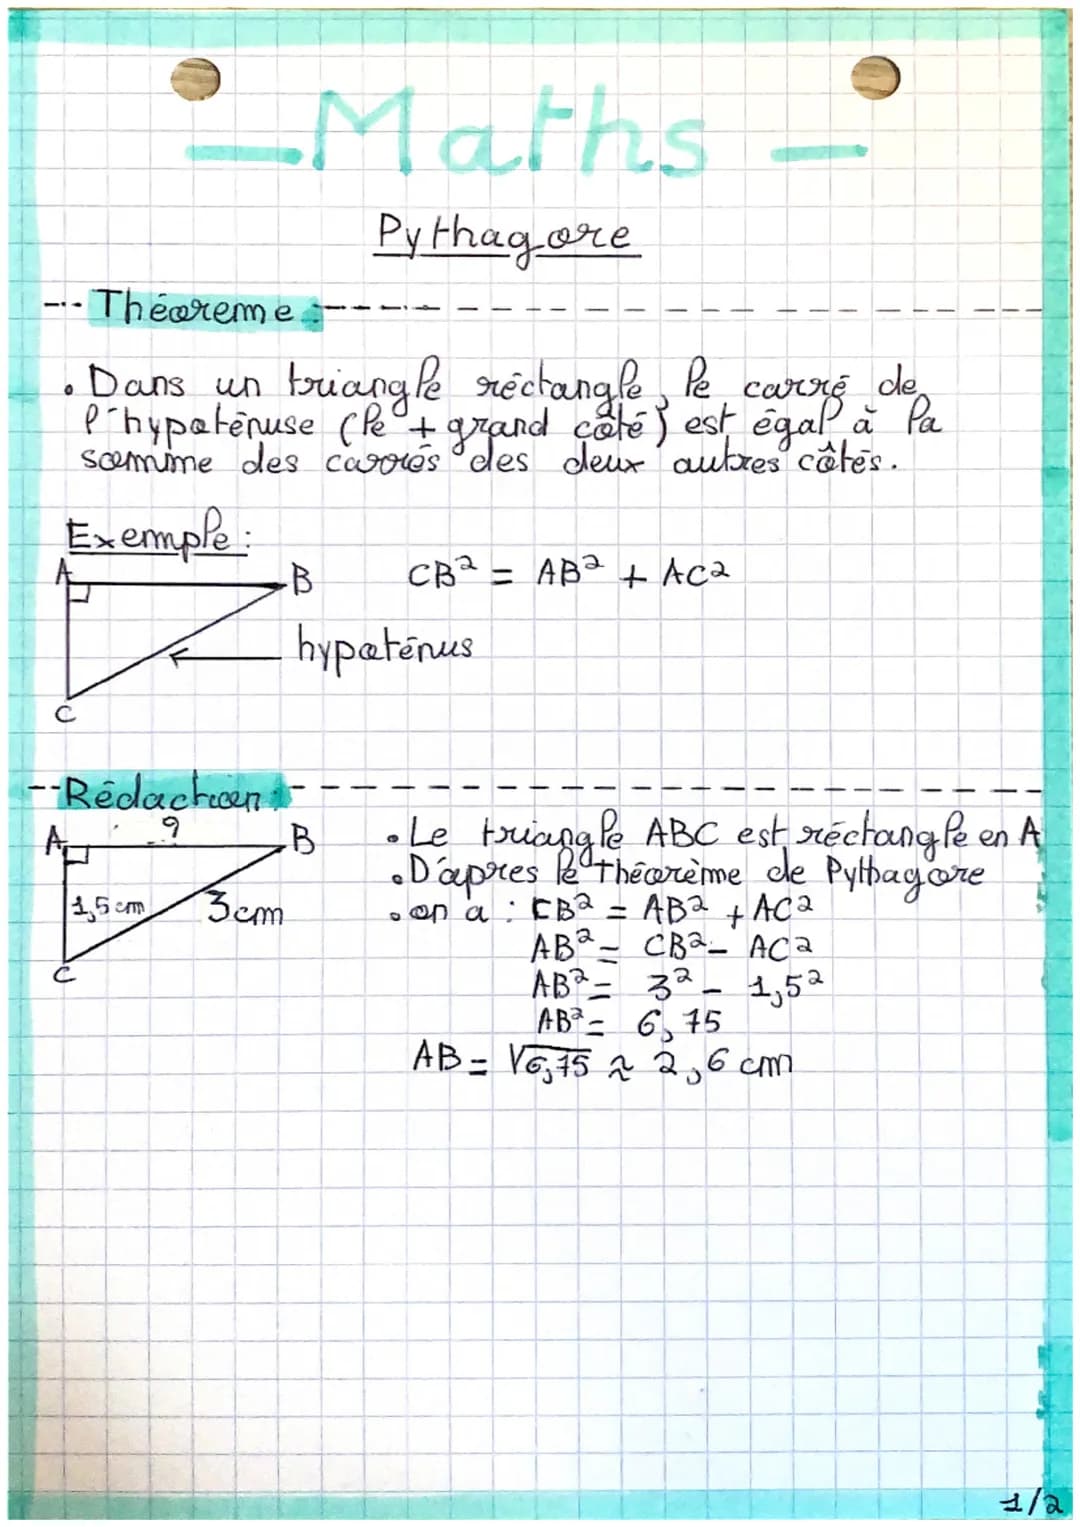 - Maths -
Pythagore
Théoreme :
• Dans un triangle réctangle, le carré de
l'hypoténuse (le + grand côté) est égal à la
somme des carrés des deux autres côtés.
Exemple :
A
B
CB² = AB² + AC²
hypoténus
C
Rédaction :
A
?
B
1,5 cm
3cm
C
• Le triangle ABC est réctangle en A
• D'apres le théorème de Pythagore
• on a : CB² = AB² + AC²
AB² = CB² - AC²
AB² = 3² - 1,5²
AB² = 6,75
AB = √6,75 ≈ 2,6 cm
1/2